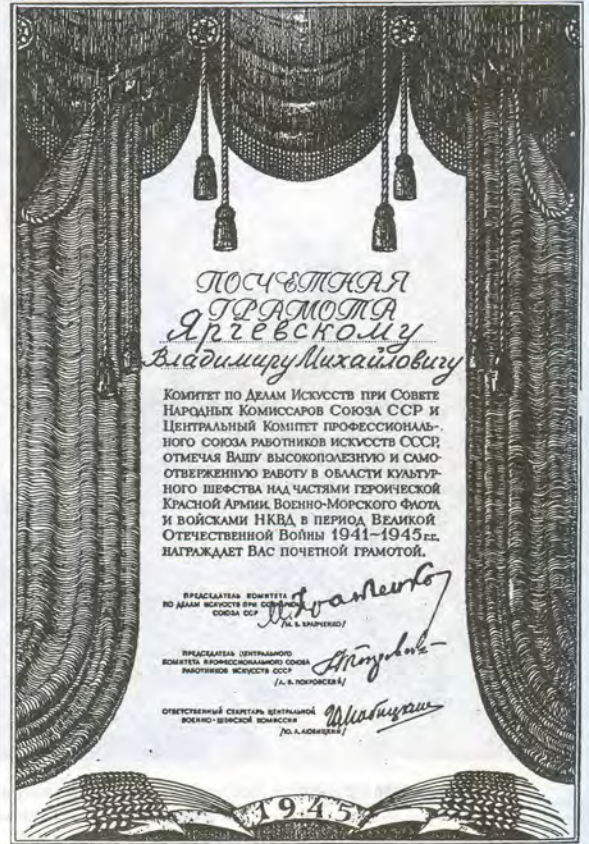 ПОЧЕТНАЯ
ГРАМОТА
Ярчевскому
Владимиру Михайловичу
Комитет по Делам Искусств при Совете
Народных Комиссаров Союза ССР и
Центральный Комитет профессиональ-
ного союза работников искусств СССР,
отмечая Вашу высокополезную и само-
отверженную работу в области культур-
ного шефства над частями героической
Красной Армии, Военно-Морского Флота
и войсками НКВД в период Великой
Отечественной Войны 1941–1945 г.г.
награждает Вас почетной грамотой.
ПРЕДСЕДАТЕЛЬ КОМИТЕТА
ПО ДЕЛАМ ИСКУССТВ ПРИ
СОЮЗА ССР
/М. Б. ХРАПЧЕНКО/
ПРЕДСЕДАТЕЛЬ ЦЕНТРАЛЬНОГО
КОМИТЕТА ПРОФЕССИОНАЛЬНОГО СОЮЗА
РАБОТНИКОВ ИСКУССТВ СССР
/А. В. ПОКРОВСКИЙ/
ОТВЕТСТВЕННЫЙ СЕКРЕТАРЬ ЦЕНТРАЛЬНОЙ
ВОЕННО-ШЕФСКОЙ КОМИССИИ
/Ю. А. ЛЮБИЦКИЙ/
1945